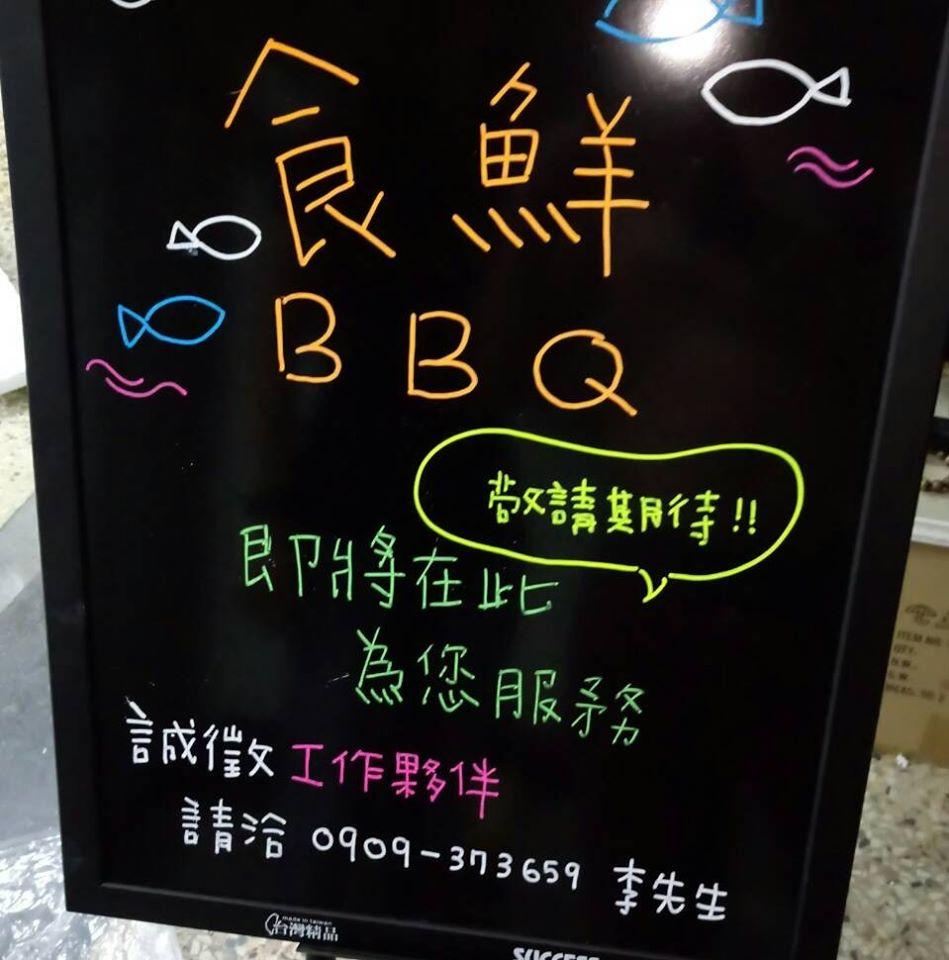 食鮮
BBQ
敬請期待!!
即將在此
為您服務
誠徵工作夥伴
請洽 0909-373659 李先生
made in taiwan
台灣精品
SUCCESS
ITEM NO.
QTY.